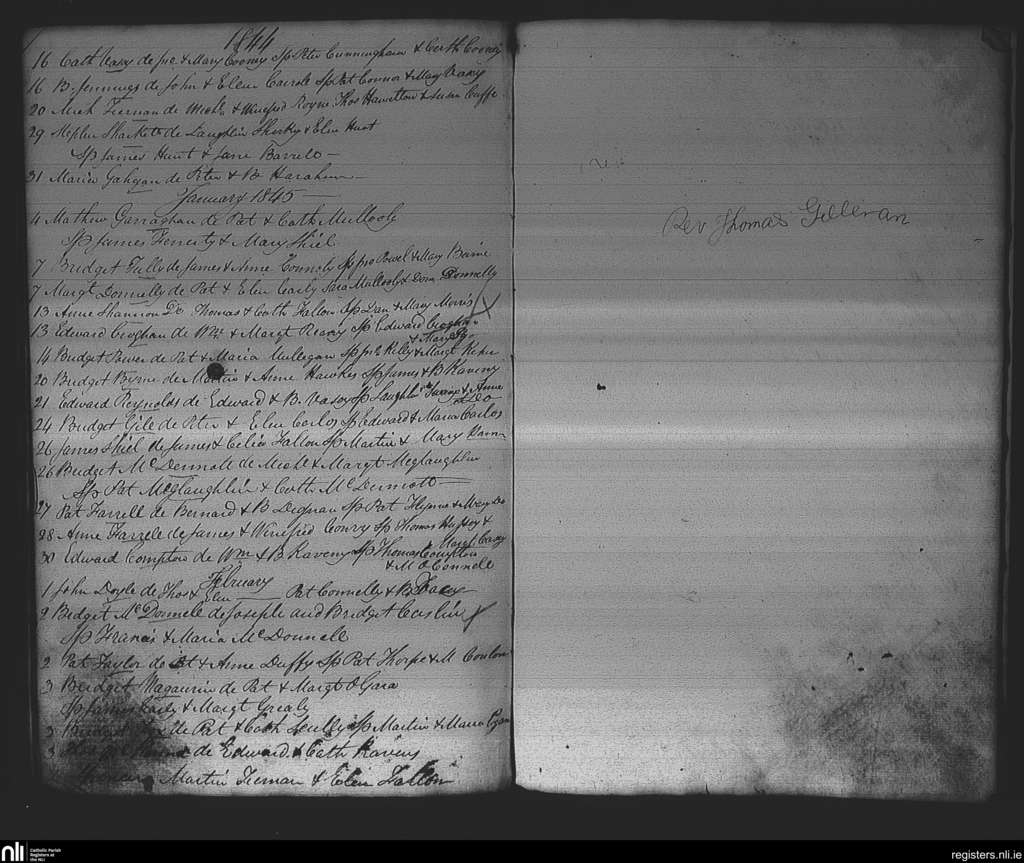 1844
16 Cath Veasy de Jno & Mary Cooney Sp Peter Cunningham & Cath Cooney
16 B Jennings de John & Elen Carrole Sp Pat Connor & Mary Veasy
20 Mich Tiernan de Michl & Winefred Royne Thos Hamilton & Susan Cuffe
29 Sharkett de Laughlin Sharky & Elen Hunt
Sp James Hunt & Jane Barrelo
31 Maria Gahgan de Peter & B Harahan
January 1845
4 Mathew Garraghan de Pat & Cath Mullooly
Sp James Fenerty & Mary Shiel
7 Bridget Tully de James & Anne Connoly Sp Jno Powel & Mary Beirne
7 Margt Donnelly de Pat & Elen Carly Sara Mullooly & Dom Donnelly
13 Anne Shannon De Thomas & Cath Fallon Sp Dan & Mary Morris
13 Edward Croghan de Wm & Margt Reavy Sp Edward Croghan
& Mary
14 Bridget Power de Pat & Maria Mullegan Sp Jno Kelly & Margt
20 Bridget Byrne de Martin & Anne Hawkes Sp James & B Raveny
21 Edward Reynolds de Edward & B Veasy Sp Laughlin & Anne
& Do
24 Bridget Gile de Peter & Elen Carlos Sp Edward & Maria Carlos
26 James Shiel de James & Celia Fallon Sp Martin & Mary
26 Bridget McDermott de Michl & Margt Meglaughlin
Sp Pat McGlaughlin & Cath McDermott
27 Pat Farrell de Bernard & B Degnan Sp Pat Flynne & Mary Do
28 Anne Farrele de James & Winefred Conry Sp Thomas &
Margt Casey
30 Edward Compton de Wm & B Raveny Sp Thomas Compton
& M O Connell
February
1 John Doyle de Thos & Elen Pat Connelly & B
2 Bridget McDonnele de Joseple and Bridget Carlin
Sp Francis & Maria McDonnell
2 Pat Taylor de Pat & Anne Duffy Sp Pat Thorpe & M Conlon
3 Bridget Magaurin de Pat & Margt O Gara
Sp James Early & Margt Grealy
3 de Pat & Cath Scully Sp Martin & Maria Egan
3 de Edward & Cath Raveny
Martin Tiernan & Elen Fallon
Rev Thomas Gilleran
nli Catholic Parish
Registers at
the NLI
registers.nli.ie